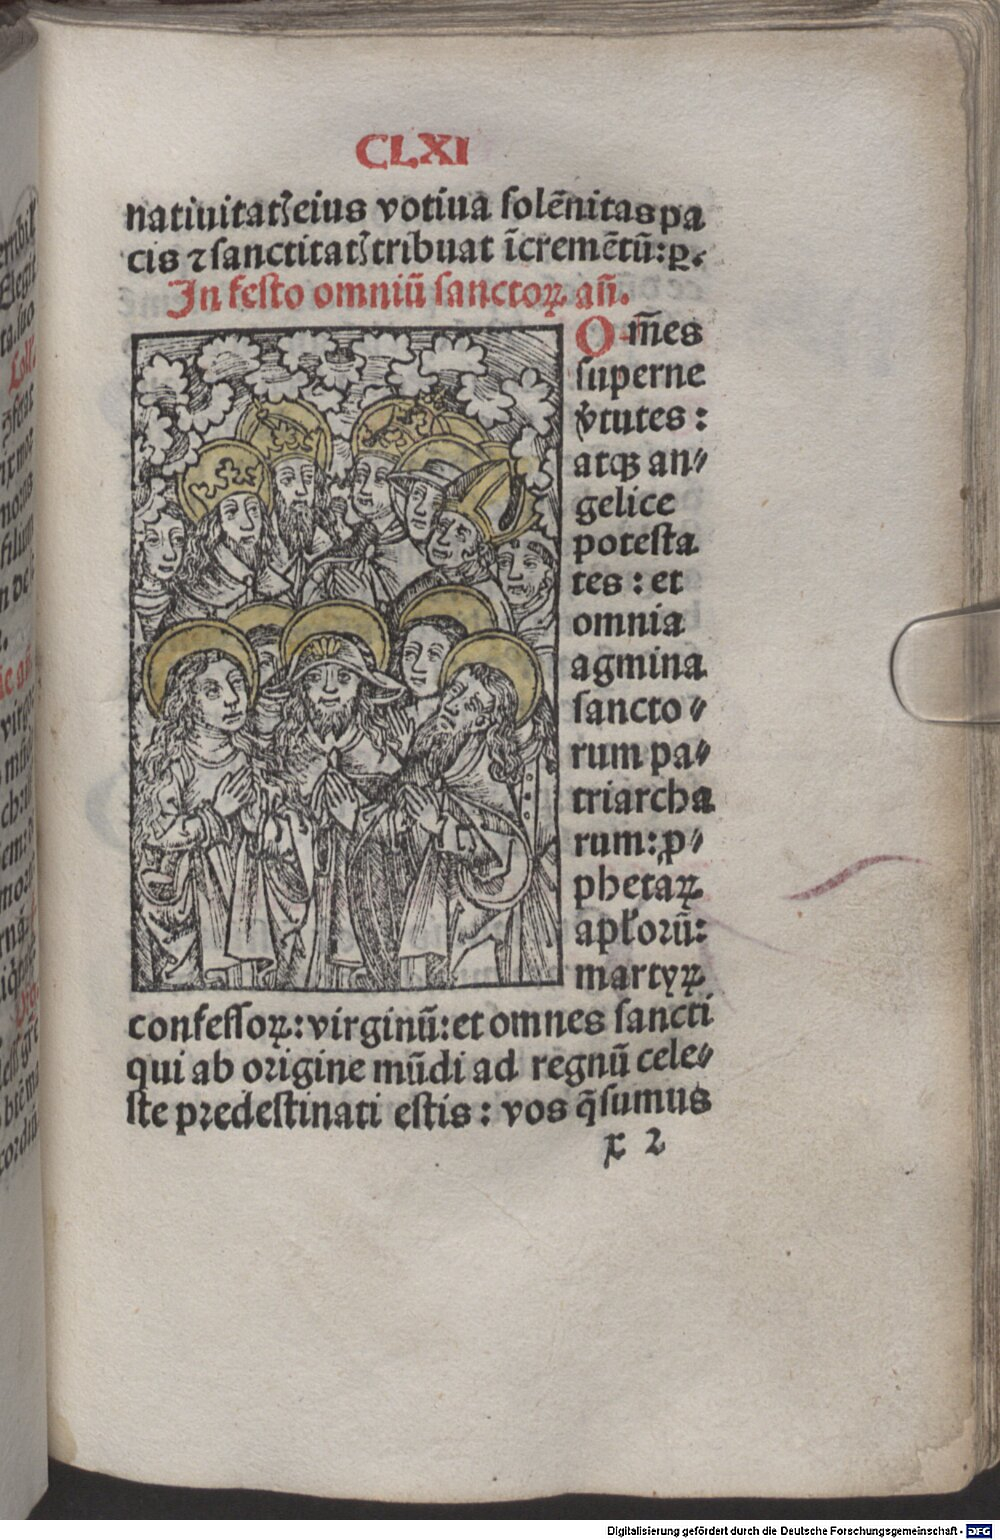 CLXI
natiuitatꝭ eius votiua solēnitas pa
cis ⁊ sanctitatꝭ tribuat īcremētū: ꝑ.
In festo omniū sanctoꝝ an̄.
O m̄es
superne
v̓tutes :
atqꝫ an⸗
gelice
potesta
tes : et
omnia
agmina
sancto⸗
rum pa⸗
triarcha
rum: ꝓ⸗
phetaꝝ
apl̓oꝛū:
martyꝝ
confessoꝝ: virginū: et omnes sancti
qui ab oꝛigine mūdi ad regnū cele⸗
ste pꝛedestinati estis : vos q̄sumus
x 2
Digitalisierung gefördert durch die Deutsche Forschungsgemeinschaft - DFG